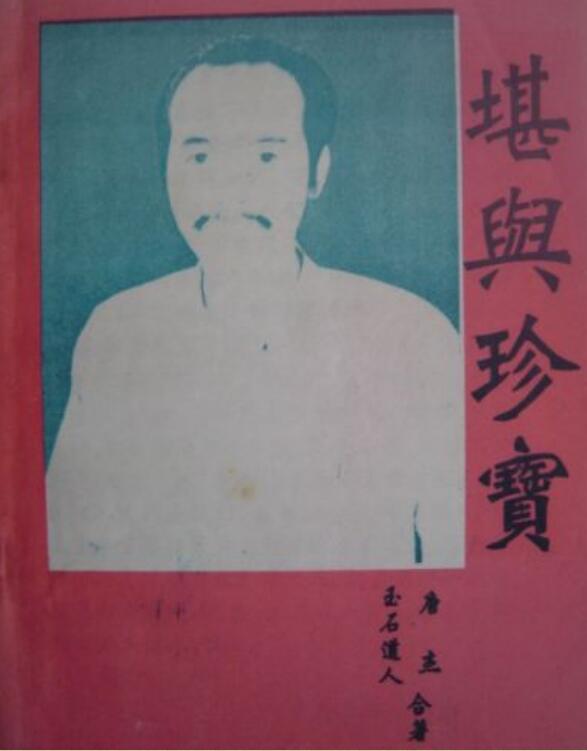 堪與珍寶
唐杰 合著
玉石道人